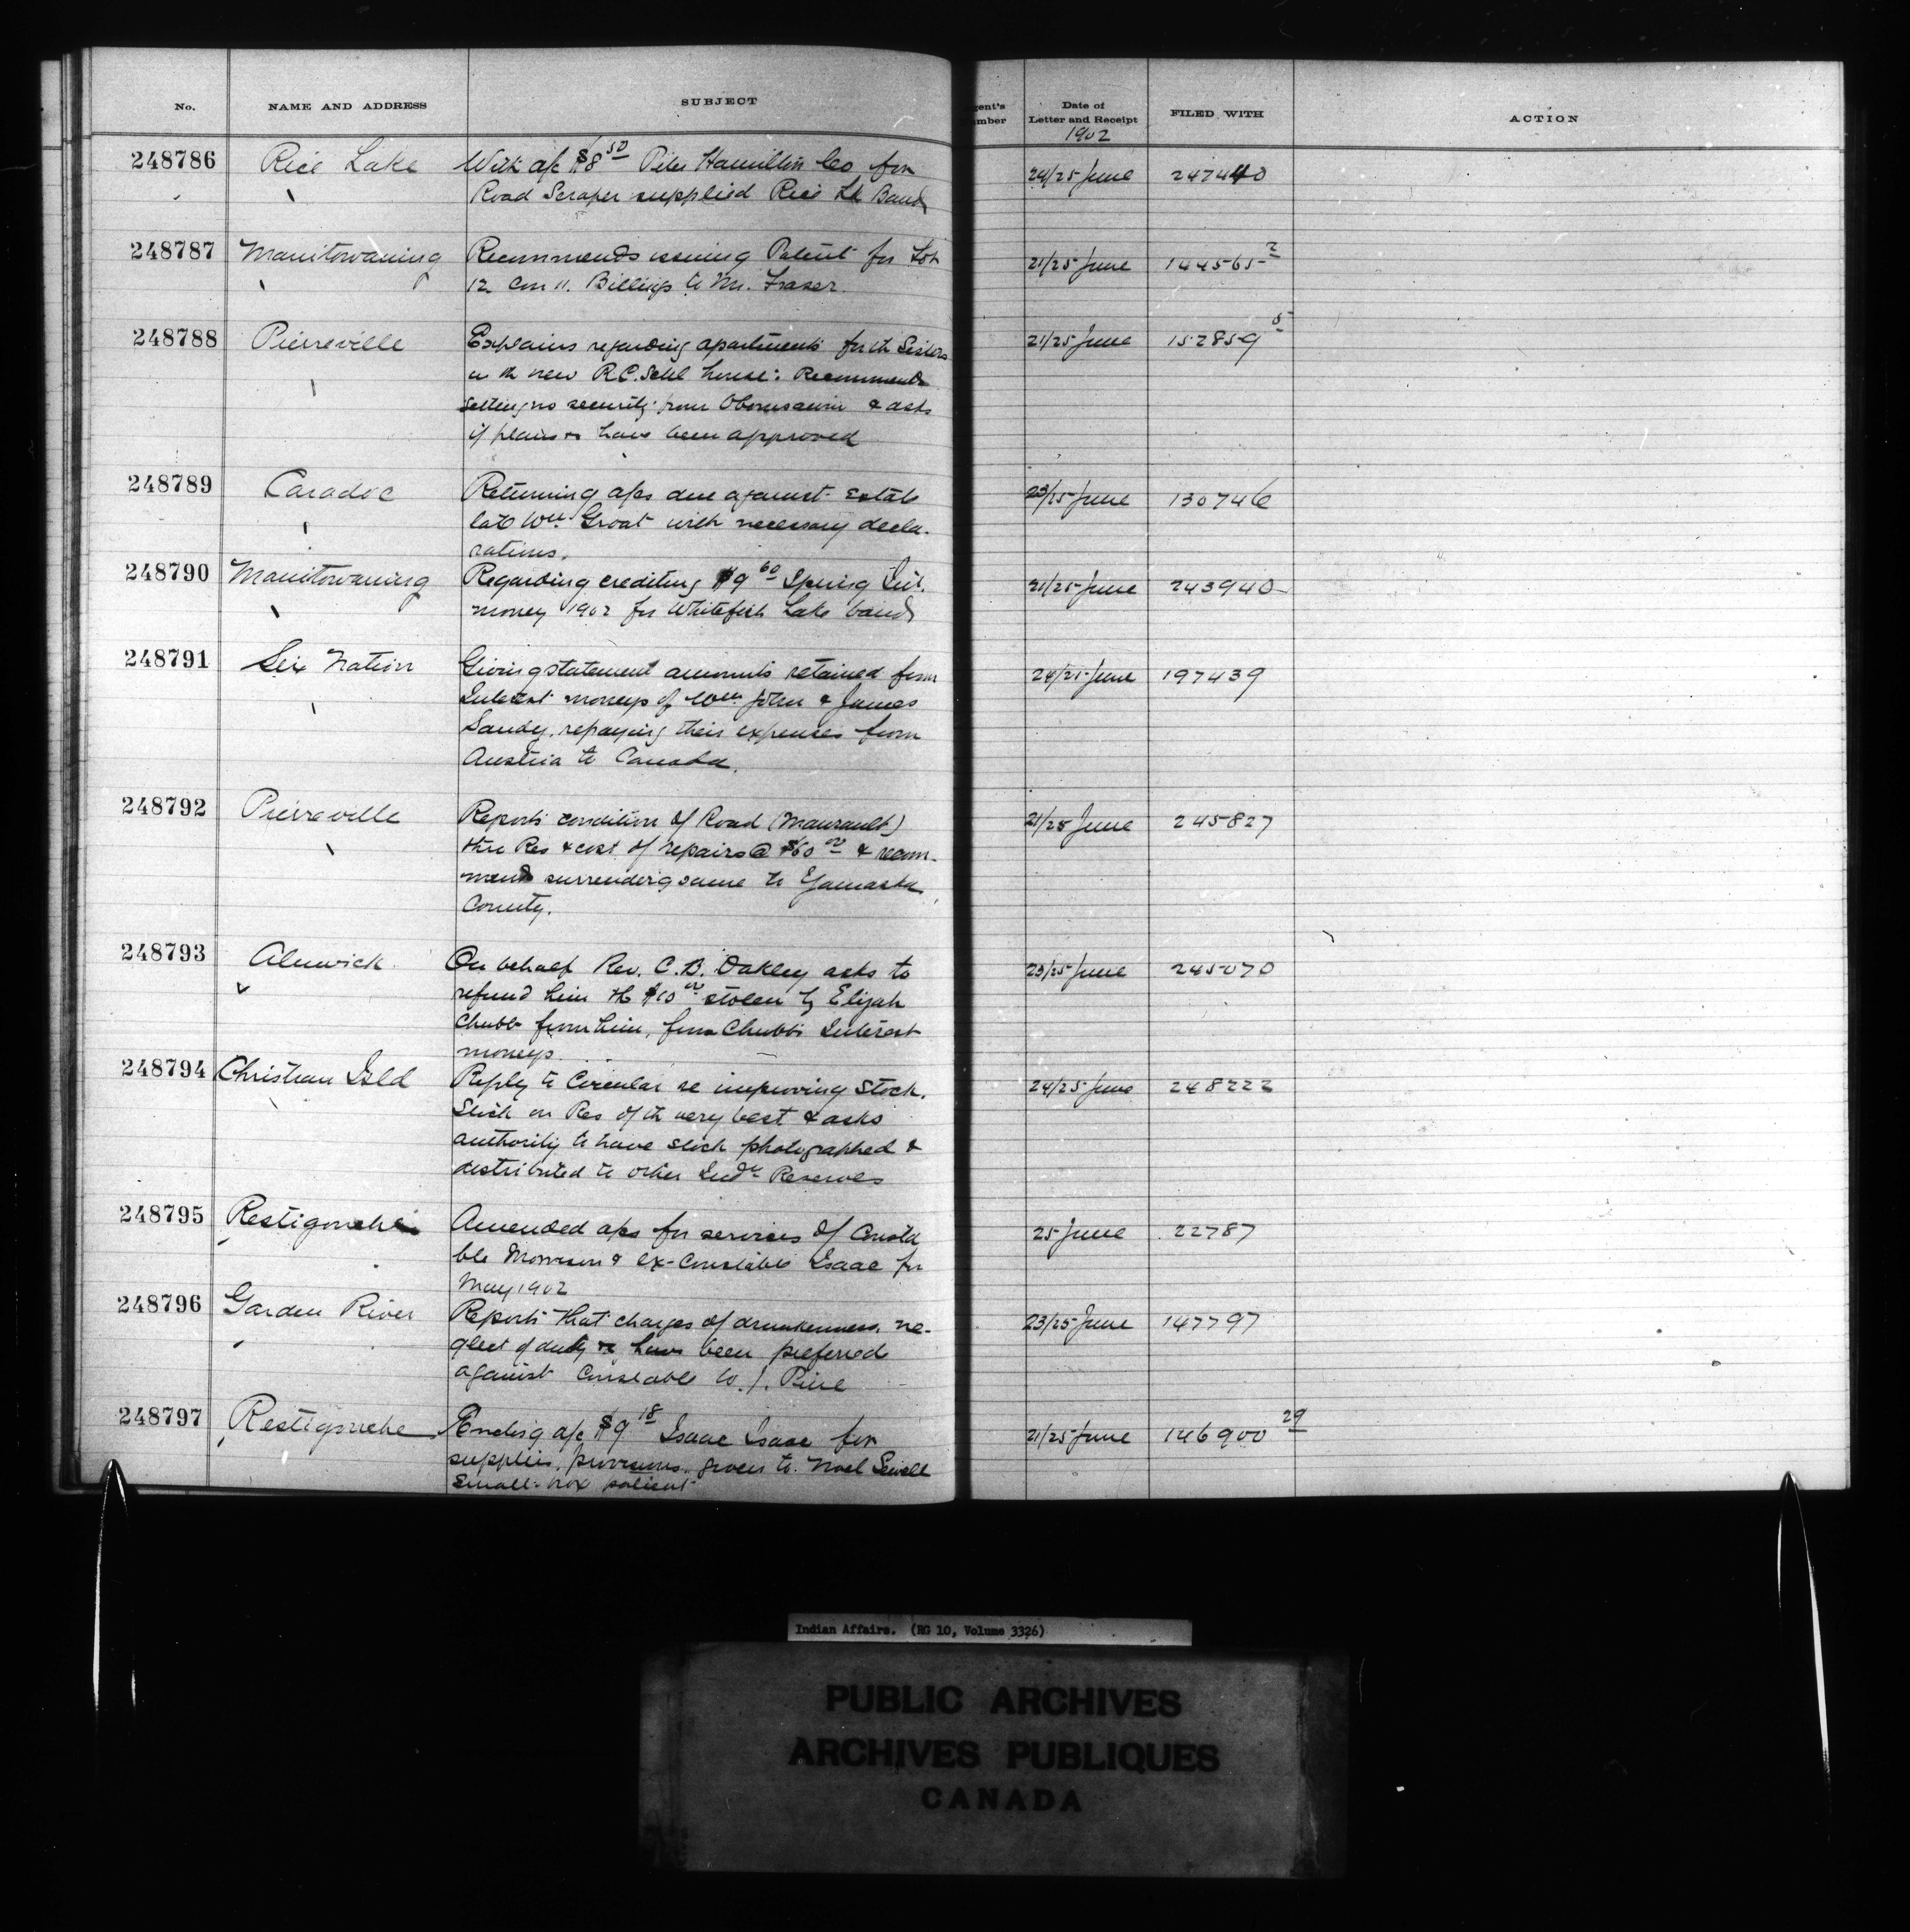 No. NAME AND ADDRESS SUBJECT gent's mber Date of Letter and Receipt FILED WITH ACTION
1902
248786 Rice Lake With a/c $8 50 Peter Hamilton Co for 24/25 June 247440
Road Scraper supplied Rice Lk Band
248787 Manitowaning Recommends issuing Patent for Lot 21/25 June 144565 2
12 Con 11. Billings to Mr. Fraser.
248788 Pierreville Explains regarding apartments for th Sisters 21/25 June 152859 5
in th new R.C. Schl house: Recommends
getting no security from & asks
if plans &c have been approved
248789 Caradoc Returning a/cs due against Estate 23/25 June 130746
late Wm Groat with necessary decla-
rations.
248790 Manitowaning Regarding crediting $9 60 Spring Int. 21/25 June 243940
money 1902 for Whitefish Lake band
248791 Six Nation Giving statement amounts retained from 24/25 June 197439
Interest moneys of Wm John & James
Sandy, repaying their expenses from
Austria to Canada.
248792 Pierreville Reports condition of Road (Maurault) 21/25 June 245827
thro Res & cost of repairs @ $60 00 & recom-
mends surrenderg same to Yamaska
County.
248793 Alnwick On behalf Rev. C. B. Oakley asks to 23/25 June 245070
refund him th $10 00 stolen by Elijah
Chubb from him, from Chubb's Interest
moneys.
248794 Christian Isld Reply to Circular re improving Stock. 24/25 June 248222
Stock on Res of th very best & asks
authority to have stock photographed &
distributed to other Indn Reserves
248795 Restigouche Amended a/cs for services of Consta 25 June 22787
ble Morrison & ex-Constable Isaac for
May 1902
248796 Garden River Reports that charges of drunkenness, ne- 23/25 June 147797
glect of duty &c have been preferred
against Constable W. J. Pine
248797 Restigouche Enclosg a/c $9 18 Isaac Isaac for 21/25 June 146900 29
supplies, provisions given to Noel Sewell
Small-pox patient
Indian Affairs. (RG 10, Volume 3326)
PUBLIC ARCHIVES
ARCHIVES PUBLIQUES
CANADA